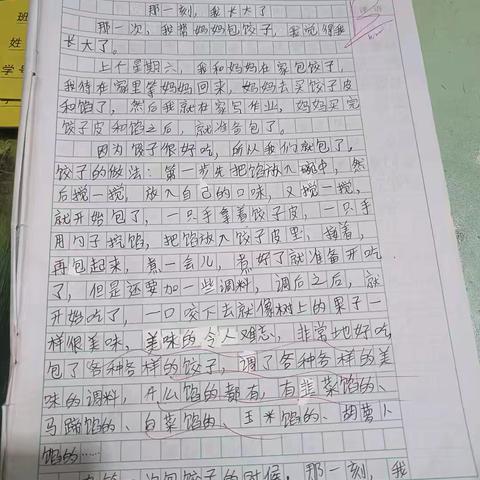 班
姓
学号
那一刻，我长大了
那一次，我帮妈妈包饺子，我觉得我
长大了。
上个星期六，我和妈妈在家包饺子，
我待在家里等妈妈回来，妈妈去买饺子皮
和馅了，然后我就在家写作业，妈妈买完
饺子皮和馅之后，就准备包了。
因为饺子很好吃，所以我们就包了。
饺子的做法：第一步先把馅放入碗中，然
后搅一搅，放入自己的口味，又搅一搅，
就开始包了，一只手拿着饺子皮，一只手
用勺子挖馅，把馅放入饺子皮里，接着，
再包起来，煮一会儿，煮好了就准备开吃
了，但是还要加一些调料，调后之后，就
开始吃了，一口咬下去就像树上的果子一
样很美味，美味的令人难忘，非常地好吃，
包了各种各样的饺子，调了各种各样的美
味的调料，什么馅的都有，有韭菜馅的、
马蹄馅的、白菜馅的、玉米馅的、胡萝卜
馅的……
一次包饺子的时候，那一刻，我